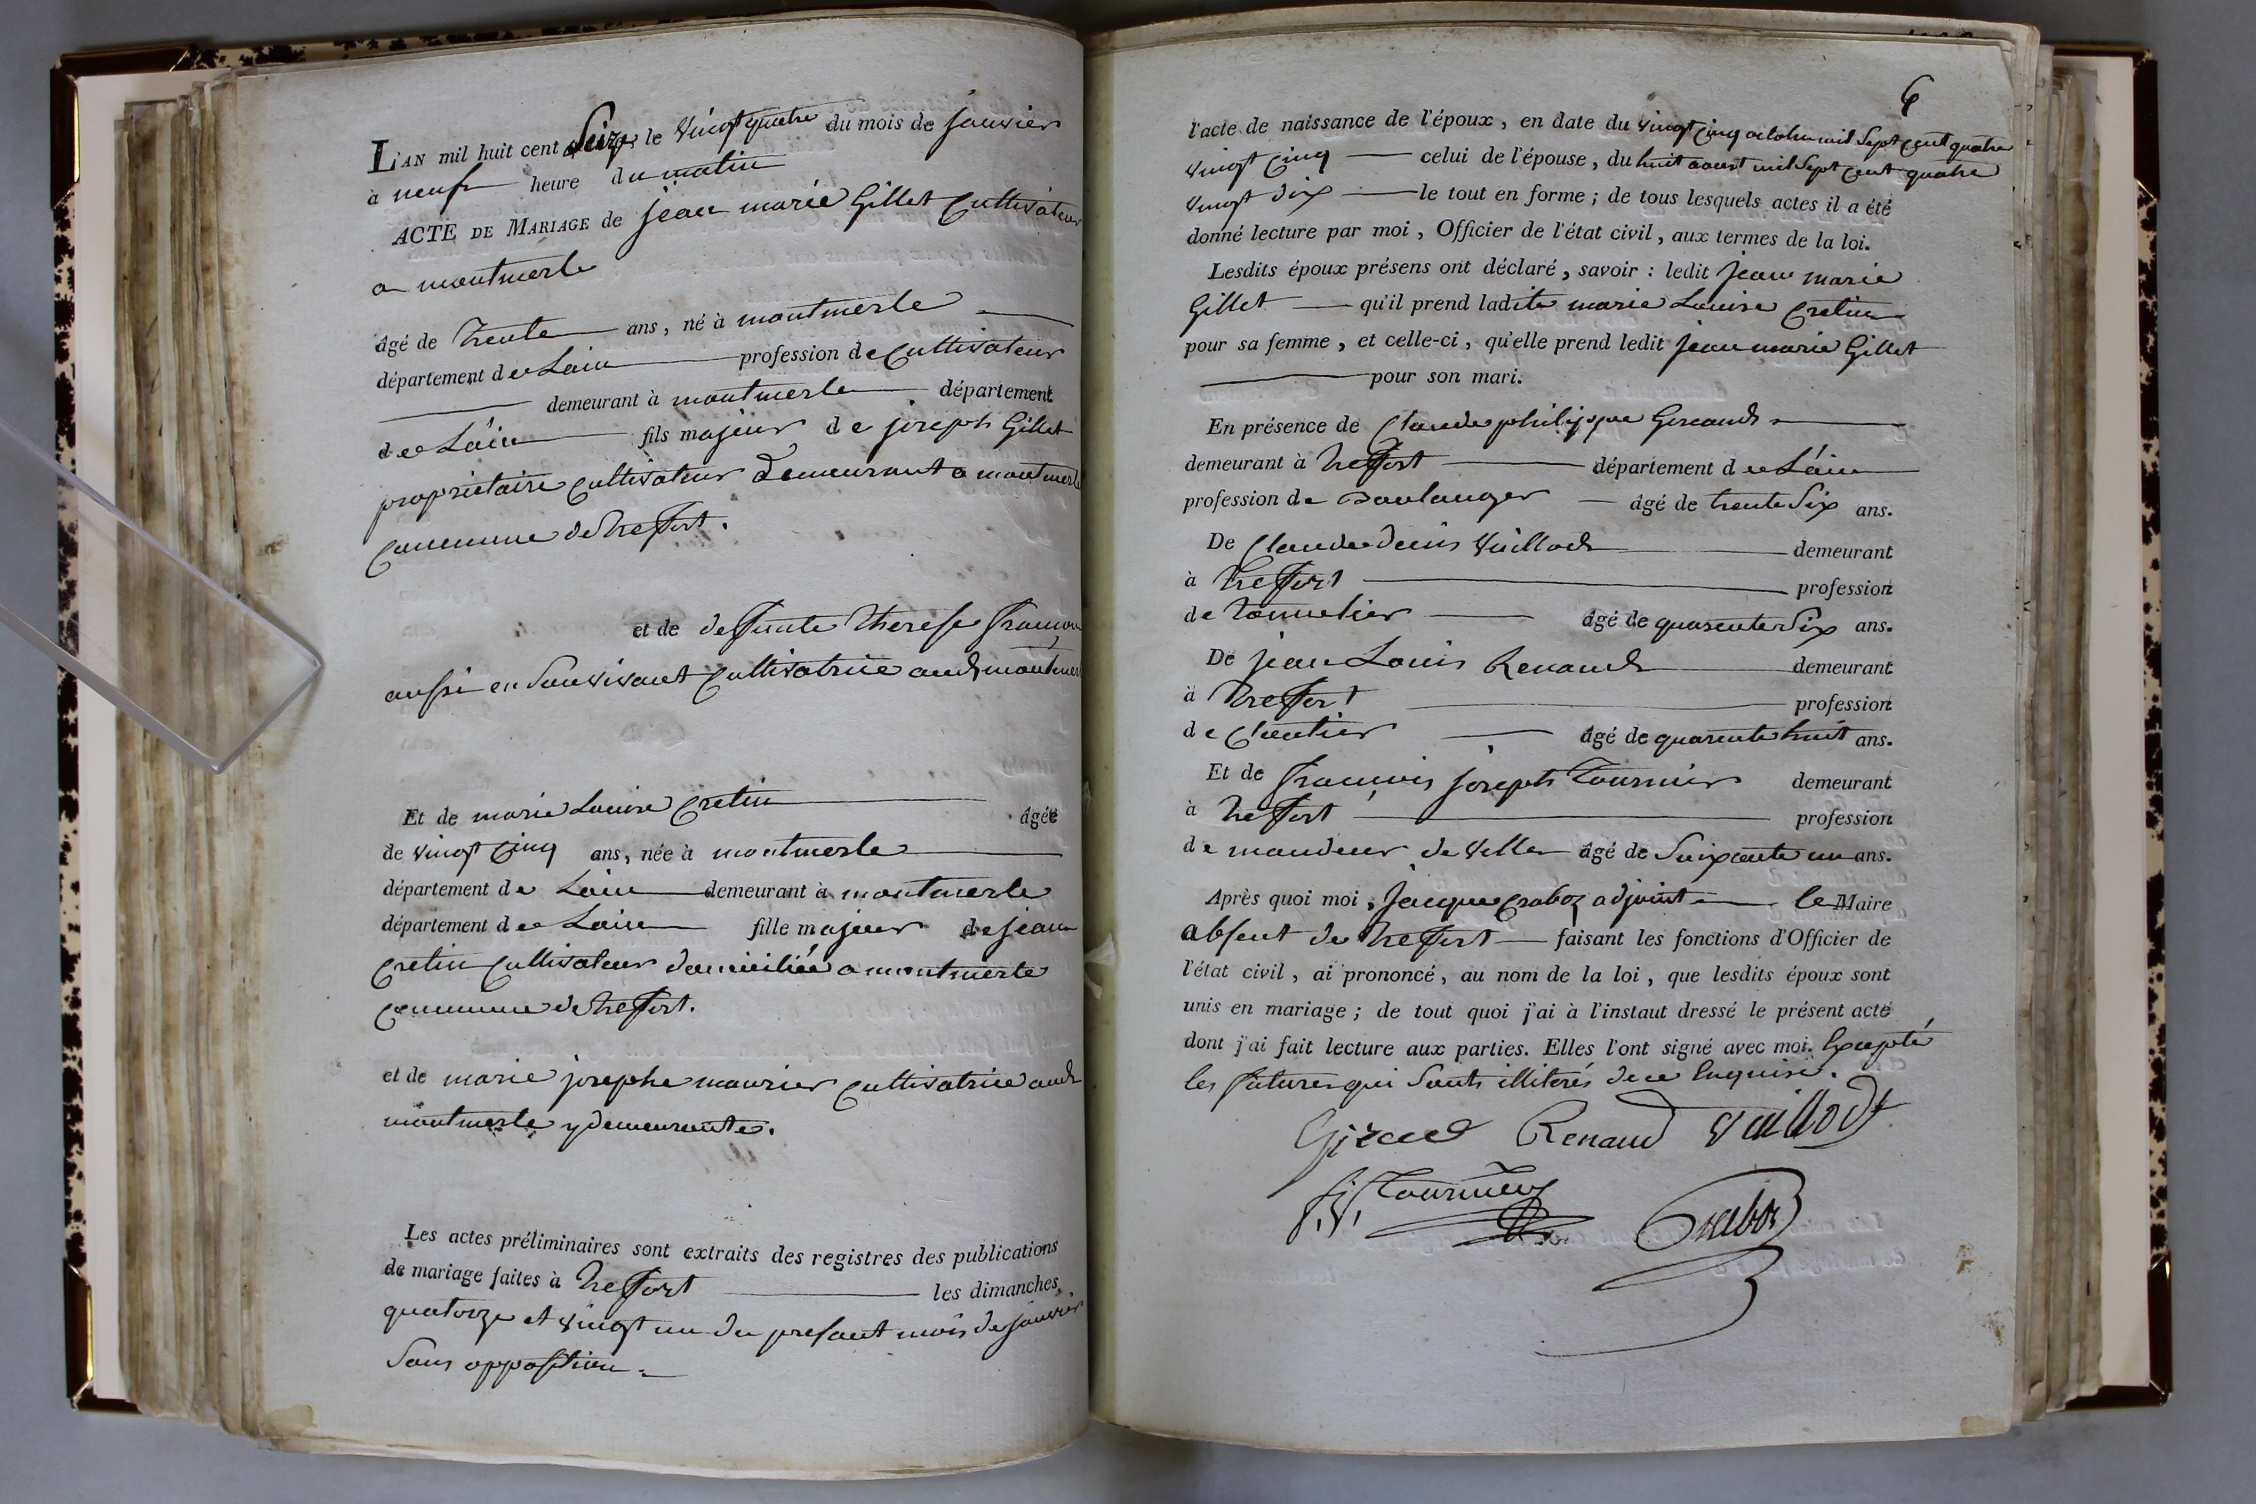 L'AN mil huit cent Seize le vingt quatre du mois de janvier
à neuf heure du matin
ACTE DE MARIAGE de jean marie Gillet Cultivateur
a montmerle
âgé de trente ans, né à montmerle
département de Lain profession de Cultivateur
demeurant à montmerle département
de Lain fils majeur de joseph Gillet
proprietaire Cultivateur demeurant a montmerle
Commune de treffort.
et de deffunte therese
aussi en Son vivant Cultivatrice aud montmer
Et de marie Louise Cretin âgée
de vingt Cinq ans, née à montmerle
département de Lain demeurant à montmerle
département de Lain fille majeur de jean
Cretin Cultivateur domicilié a montmerle
Commune de treffort.
et de marie josephe maurier Cultivatrice aud
montmerle y demeurante.
Les actes préliminaires sont extraits des registres des publications
de mariage faites à treffort les dimanches,
quatorze et vingt un du presant mois de janvier
Sans opposition.
6
l'acte de naissance de l'époux, en date du vingt Cinq octobre mil Sept Cent quatre
vingt Cinq celui de l'épouse, du huit aoust mil Sept Cent quatre
vingt dix le tout en forme; de tous lesquels actes il a été
donné lecture par moi, Officier de l'état civil, aux termes de la loi.
Lesdits époux présens ont déclaré, savoir: ledit jean marie
Gillet qu'il prend ladite marie Louise Cretin
pour sa femme, et celle-ci, qu'elle prend ledit jean marie Gillet
pour son mari.
En présence de Claude philippe Giraud
demeurant à treffort département de Lain
profession de Boulanger âgé de trente Six ans.
De Claude denis Vuillod demeurant
à treffort profession
de tonnelier âgé de quarente Six ans.
De jean Louis Renaud demeurant
à treffort profession
de Cloutier âgé de quarente huit ans.
Et de francois joseph tournier demeurant
à treffort profession
de mandeur de ville âgé de Soixante un ans.
Après quoi moi, jacque Craboz adjoint le Maire
absent de treffort faisant les fonctions d'Officier de
l'état civil, ai prononcé, au nom de la loi, que lesdits époux sont
unis en mariage; de tout quoi j'ai à l'instant dressé le présent acte
dont j'ai fait lecture aux parties. Elles l'ont signé avec moi. Excepté
les futures qui Sont illiterés de ce Enquise.
Giraud Renaud Vuillod
f. j. tournier Craboz